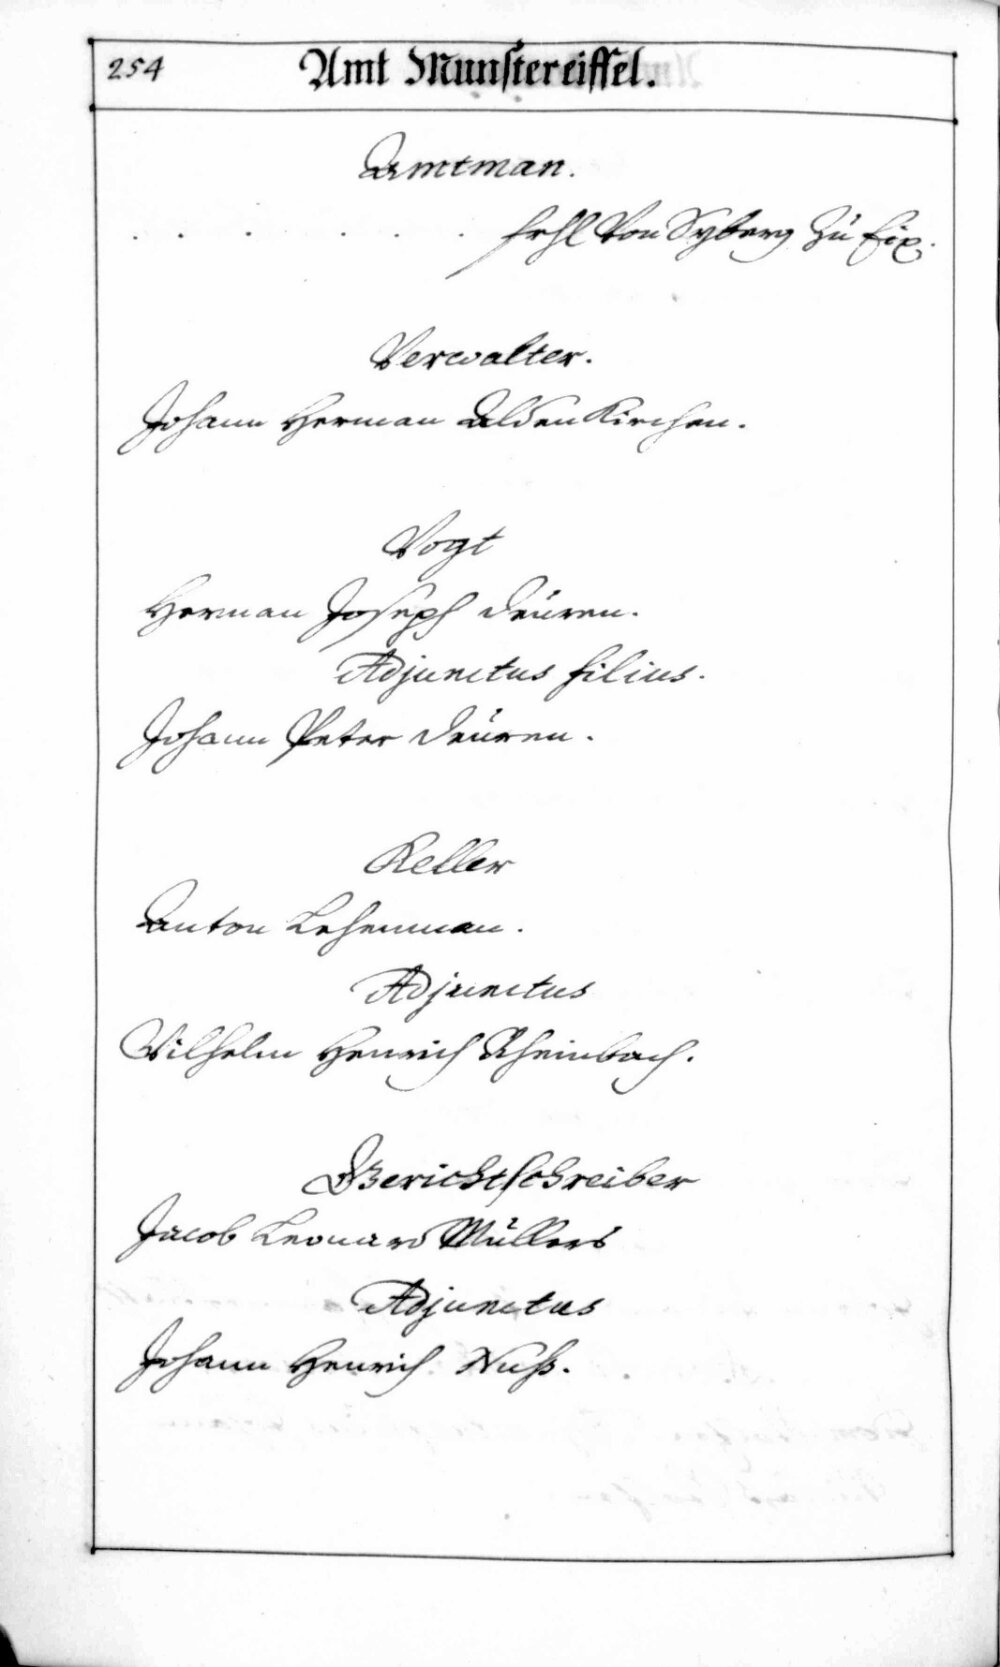 254 Amt Munstereiffel.
Amtman.
. . . . . . . frhl Von Syberg Zü Eix.
Verwalter.
Johann Herman AldenKirchen.
Vogt
Herman Joseph Deüren.
Adjunctus filius.
Johann Peter Deüren.
Keller
Anton Lehenman.
Adjunctus
Wilhelm Henrich Rheinbach.
Gerichtschreiber
Jacob Leonard Müllers
Adjunctus
Johann Henrich Nuß.